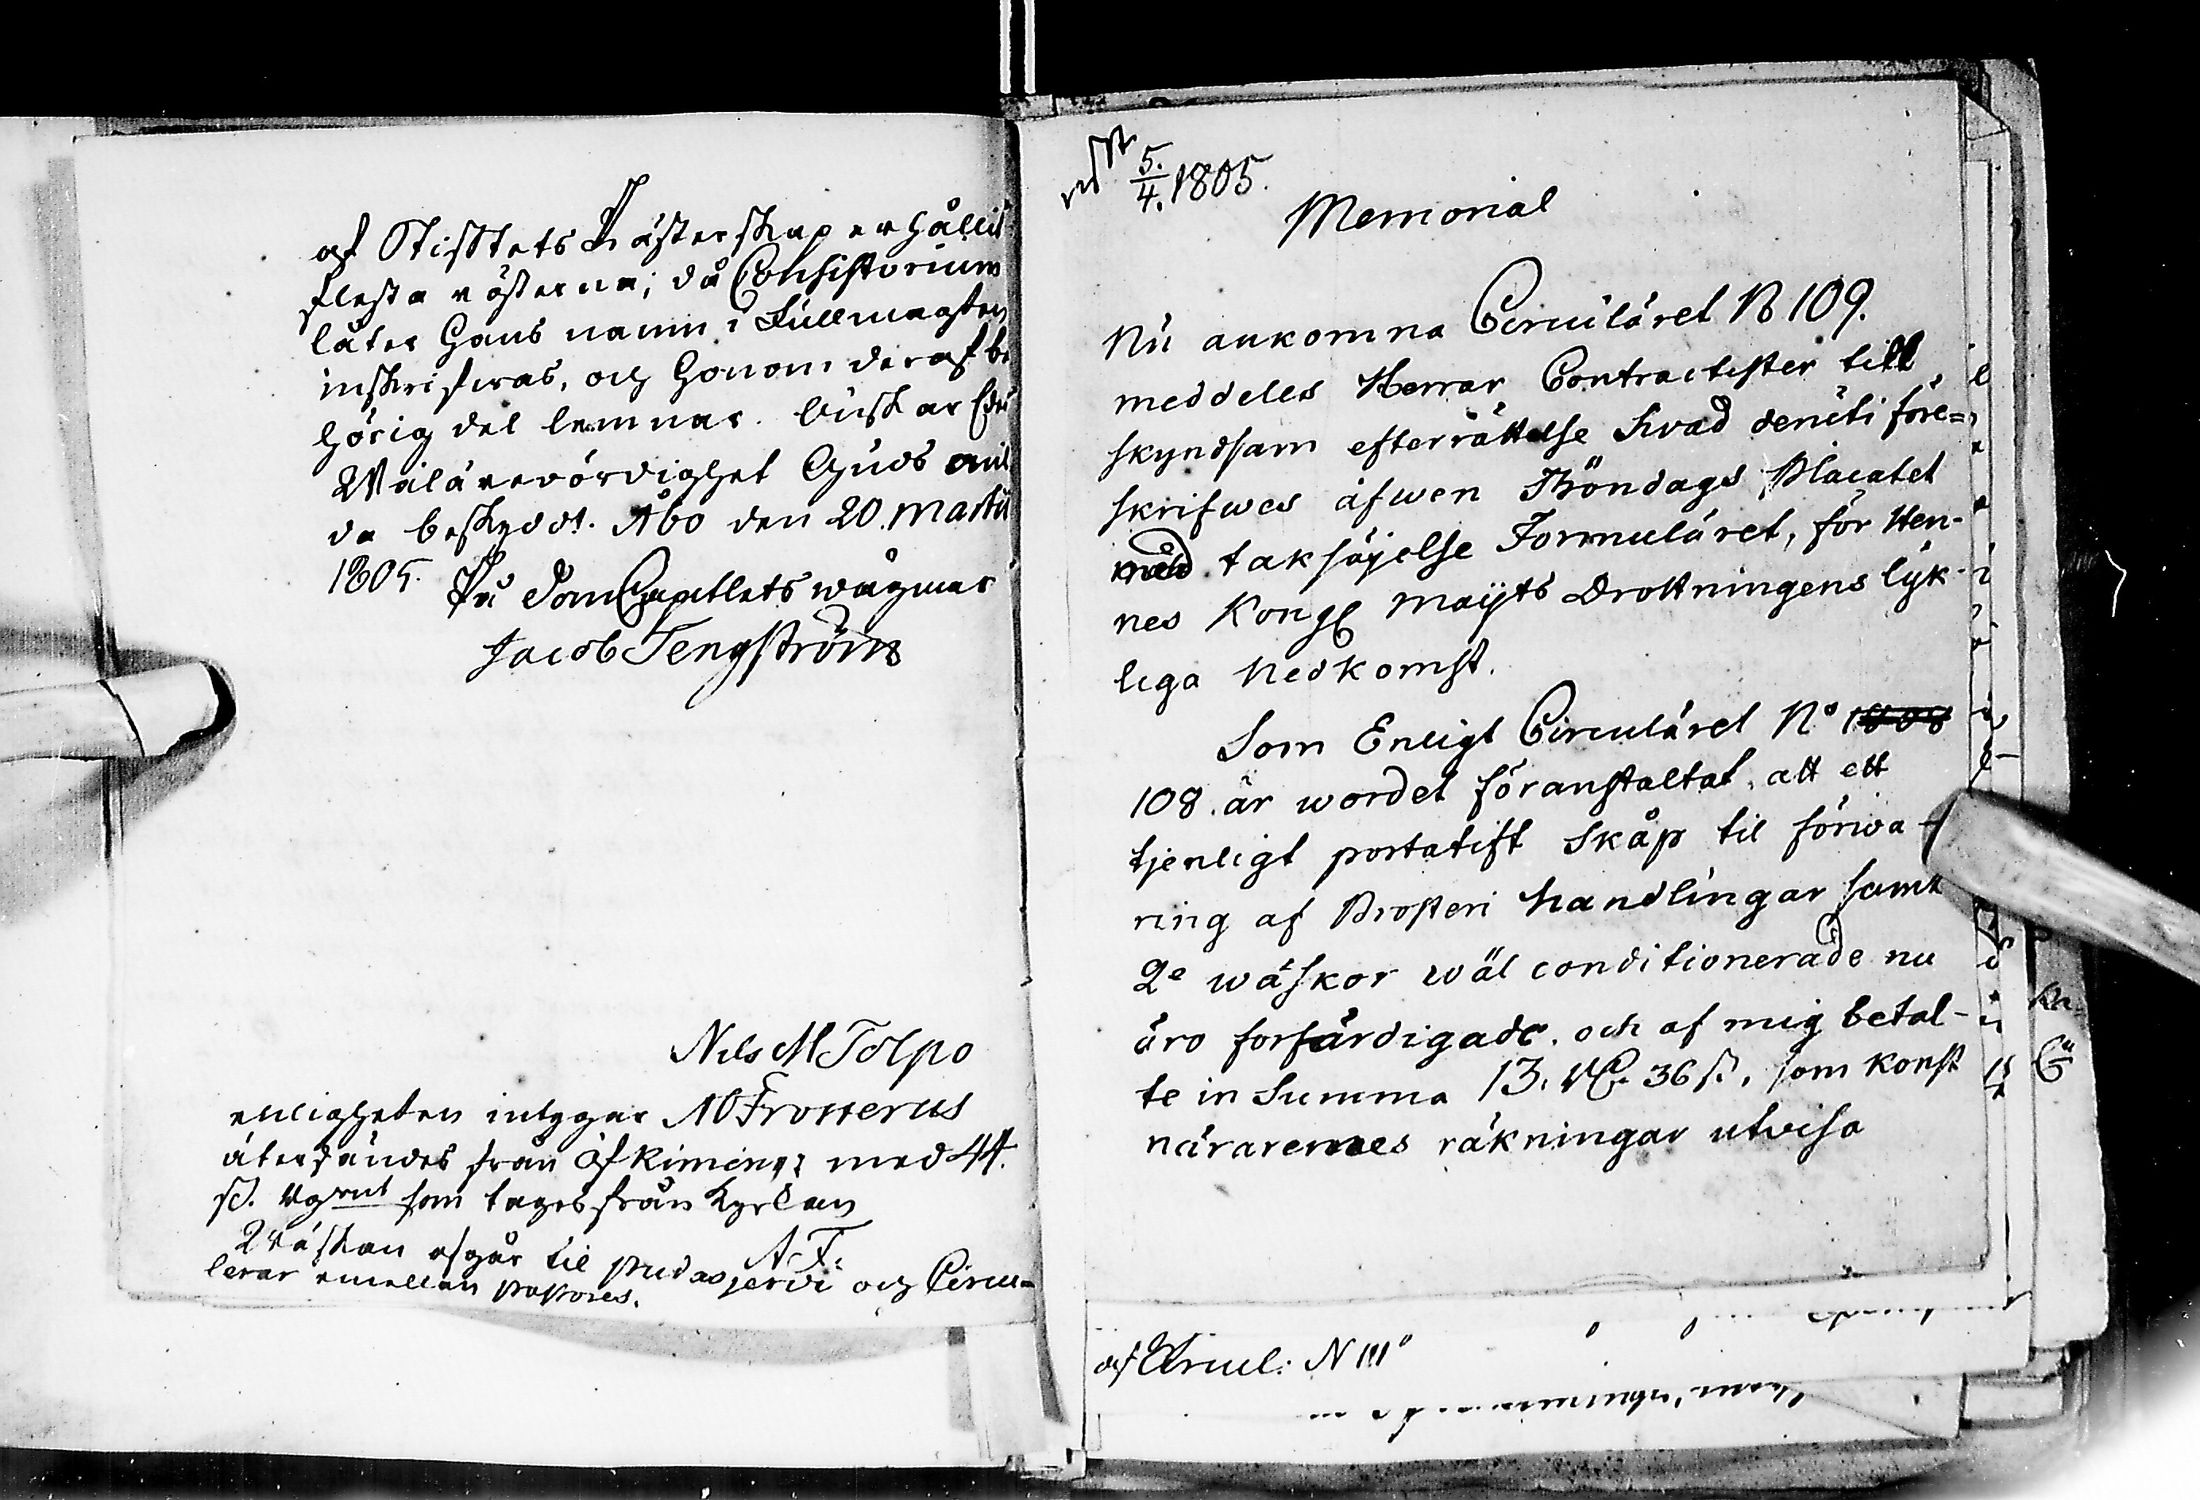 af Stiftets Prästerskap erhållit
flesta rösterna; då Consistorium
låter Hans namn i Fullmagten
inskrifwas, och Honom deraf be
hörig del lemnas. Önskar Edr
Wälärevördighet Guds mil
da beskydd. Åbo den 20 Martii
1805.
På DomCapitlets wägnar
Jacob Tengström
Nils M Tolpo
enligheten intygar NO Frosterus
återsändes från öfKiminge med 44.
som tages från Kyrkan
A. F.
Wäskan afgår til Pudasjervi och Circu-
lerar emellan
5./4. 1805.
Memorial
Nu ankomna Circuläret N 109.
meddeles Herrar Contractister till
skyndsam efterrättelse hvad deruti före=
skrifwes äfwen Böndags Placatet
med taksäjelse Formuläret, för Hen-
nes Kongl Mayts Drottningens lyk-
liga Nedkomst.
Som Enligt Circuläret No
108. är wordet föranstaltat, att ett
tjenligt portatift Skåp til förwa-
ring af Prosteri Handlingar samt
2e wäskor wäl conditionerade nu
äro förfärdigade. och af mig betal-
te in Summa 13. 36 s., som konst
närarenes räkningar utvisa
af Circul: N 111